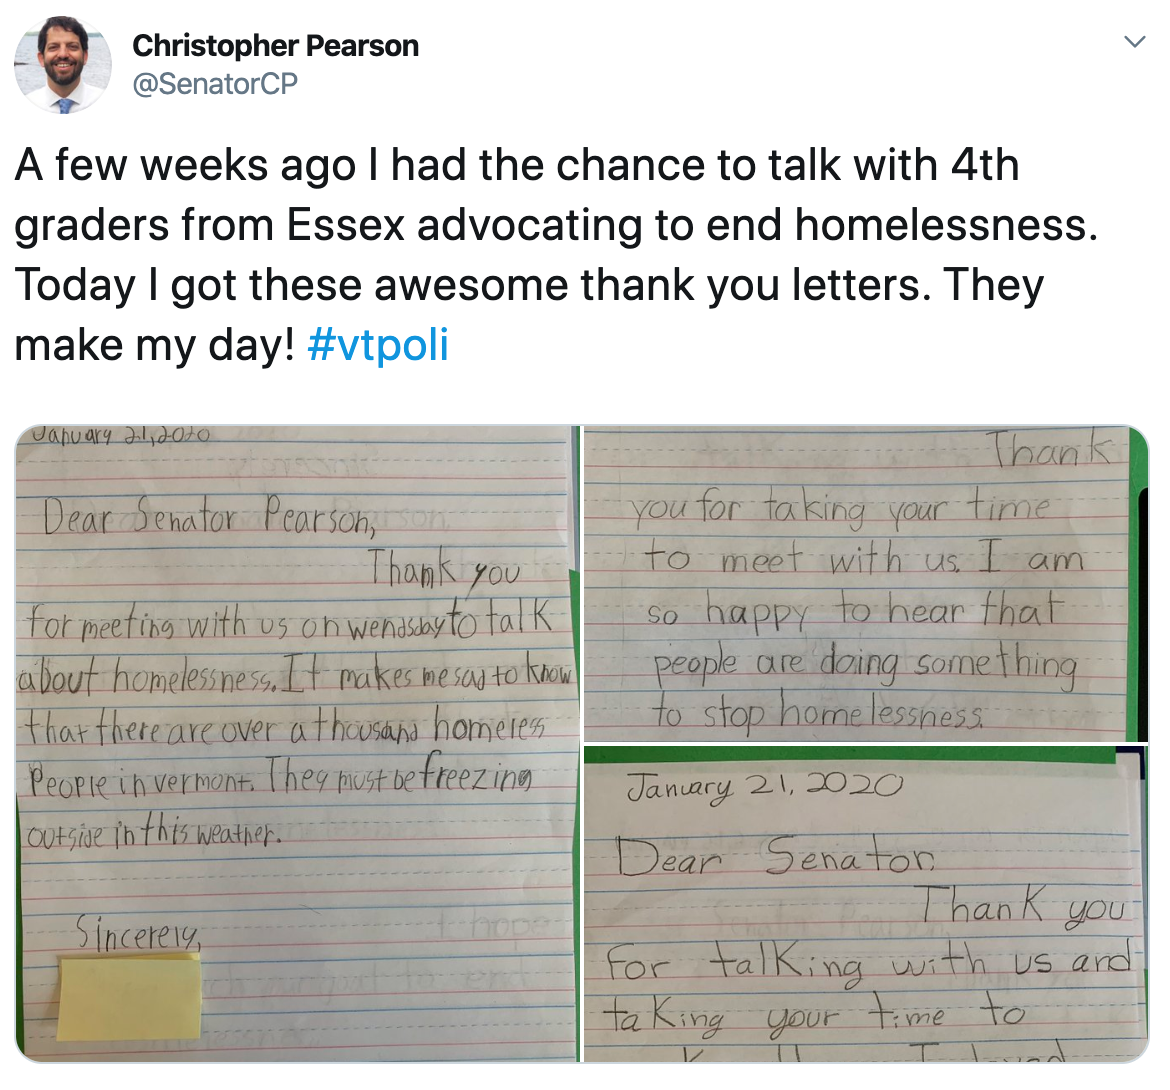 Christopher Pearson
@SenatorCP
A few weeks ago I had the chance to talk with 4th
graders from Essex advocating to end homelessness.
Today I got these awesome thank you letters. They
make my day! #vtpoli
January 21, 2020
Dear Senator Pearson,
Thank you
for meeting with us on wendsday to talk
about homelessness. It makes me sad to know
that there are over a thousand homeless
People in vermont. They must be freezing
outside in this weather.
Sincerely,
Thank
you for taking your time
to meet with us. I am
so happy to hear that
people are doing something
to stop homelessness.
January 21, 2020
Dear Senator,
Thank you
for talking with us and
taking your time to